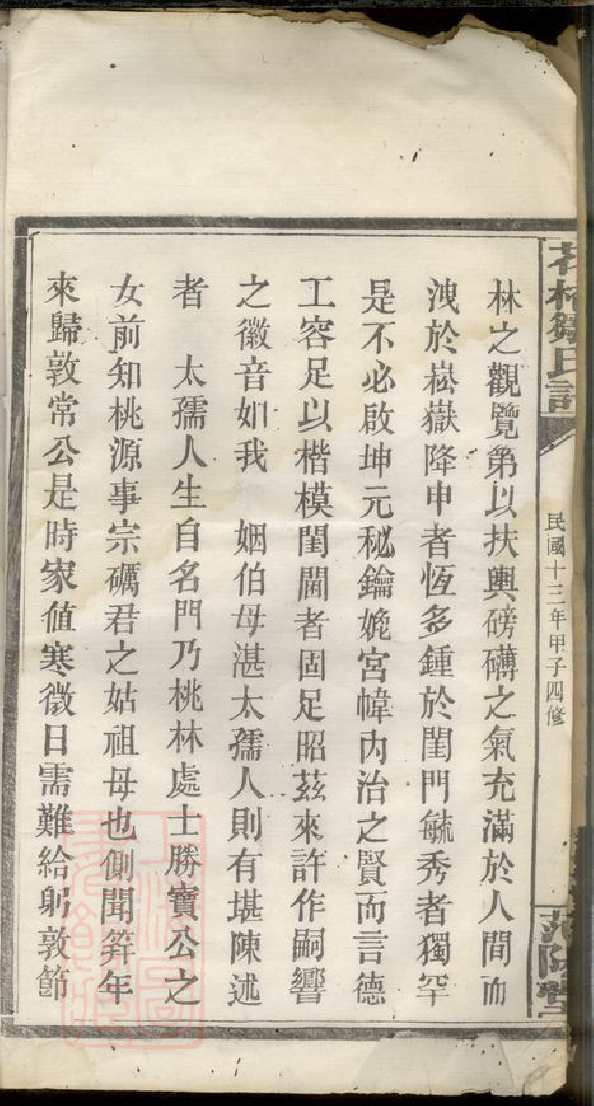 林之觀覽第以扶輿磅礴之氣充滿於人間而
洩於崧嶽降申者恆多鍾於閨門毓秀者獨罕
是不必啟坤元秘鑰娩宮幃內治之賢而言德
工容足以楷模閨閫者固足昭茲來許作嗣響
之徽音如我 姻伯母湛太孺人則有堪陳述
者 太孺人生自名門乃桃林處士勝寶公之
女前知桃源事宗礪君之姑祖母也側聞筓年
來歸敦常公是時家值寒微日需難給躬敦節
民國十三年甲子四修
范陽堂